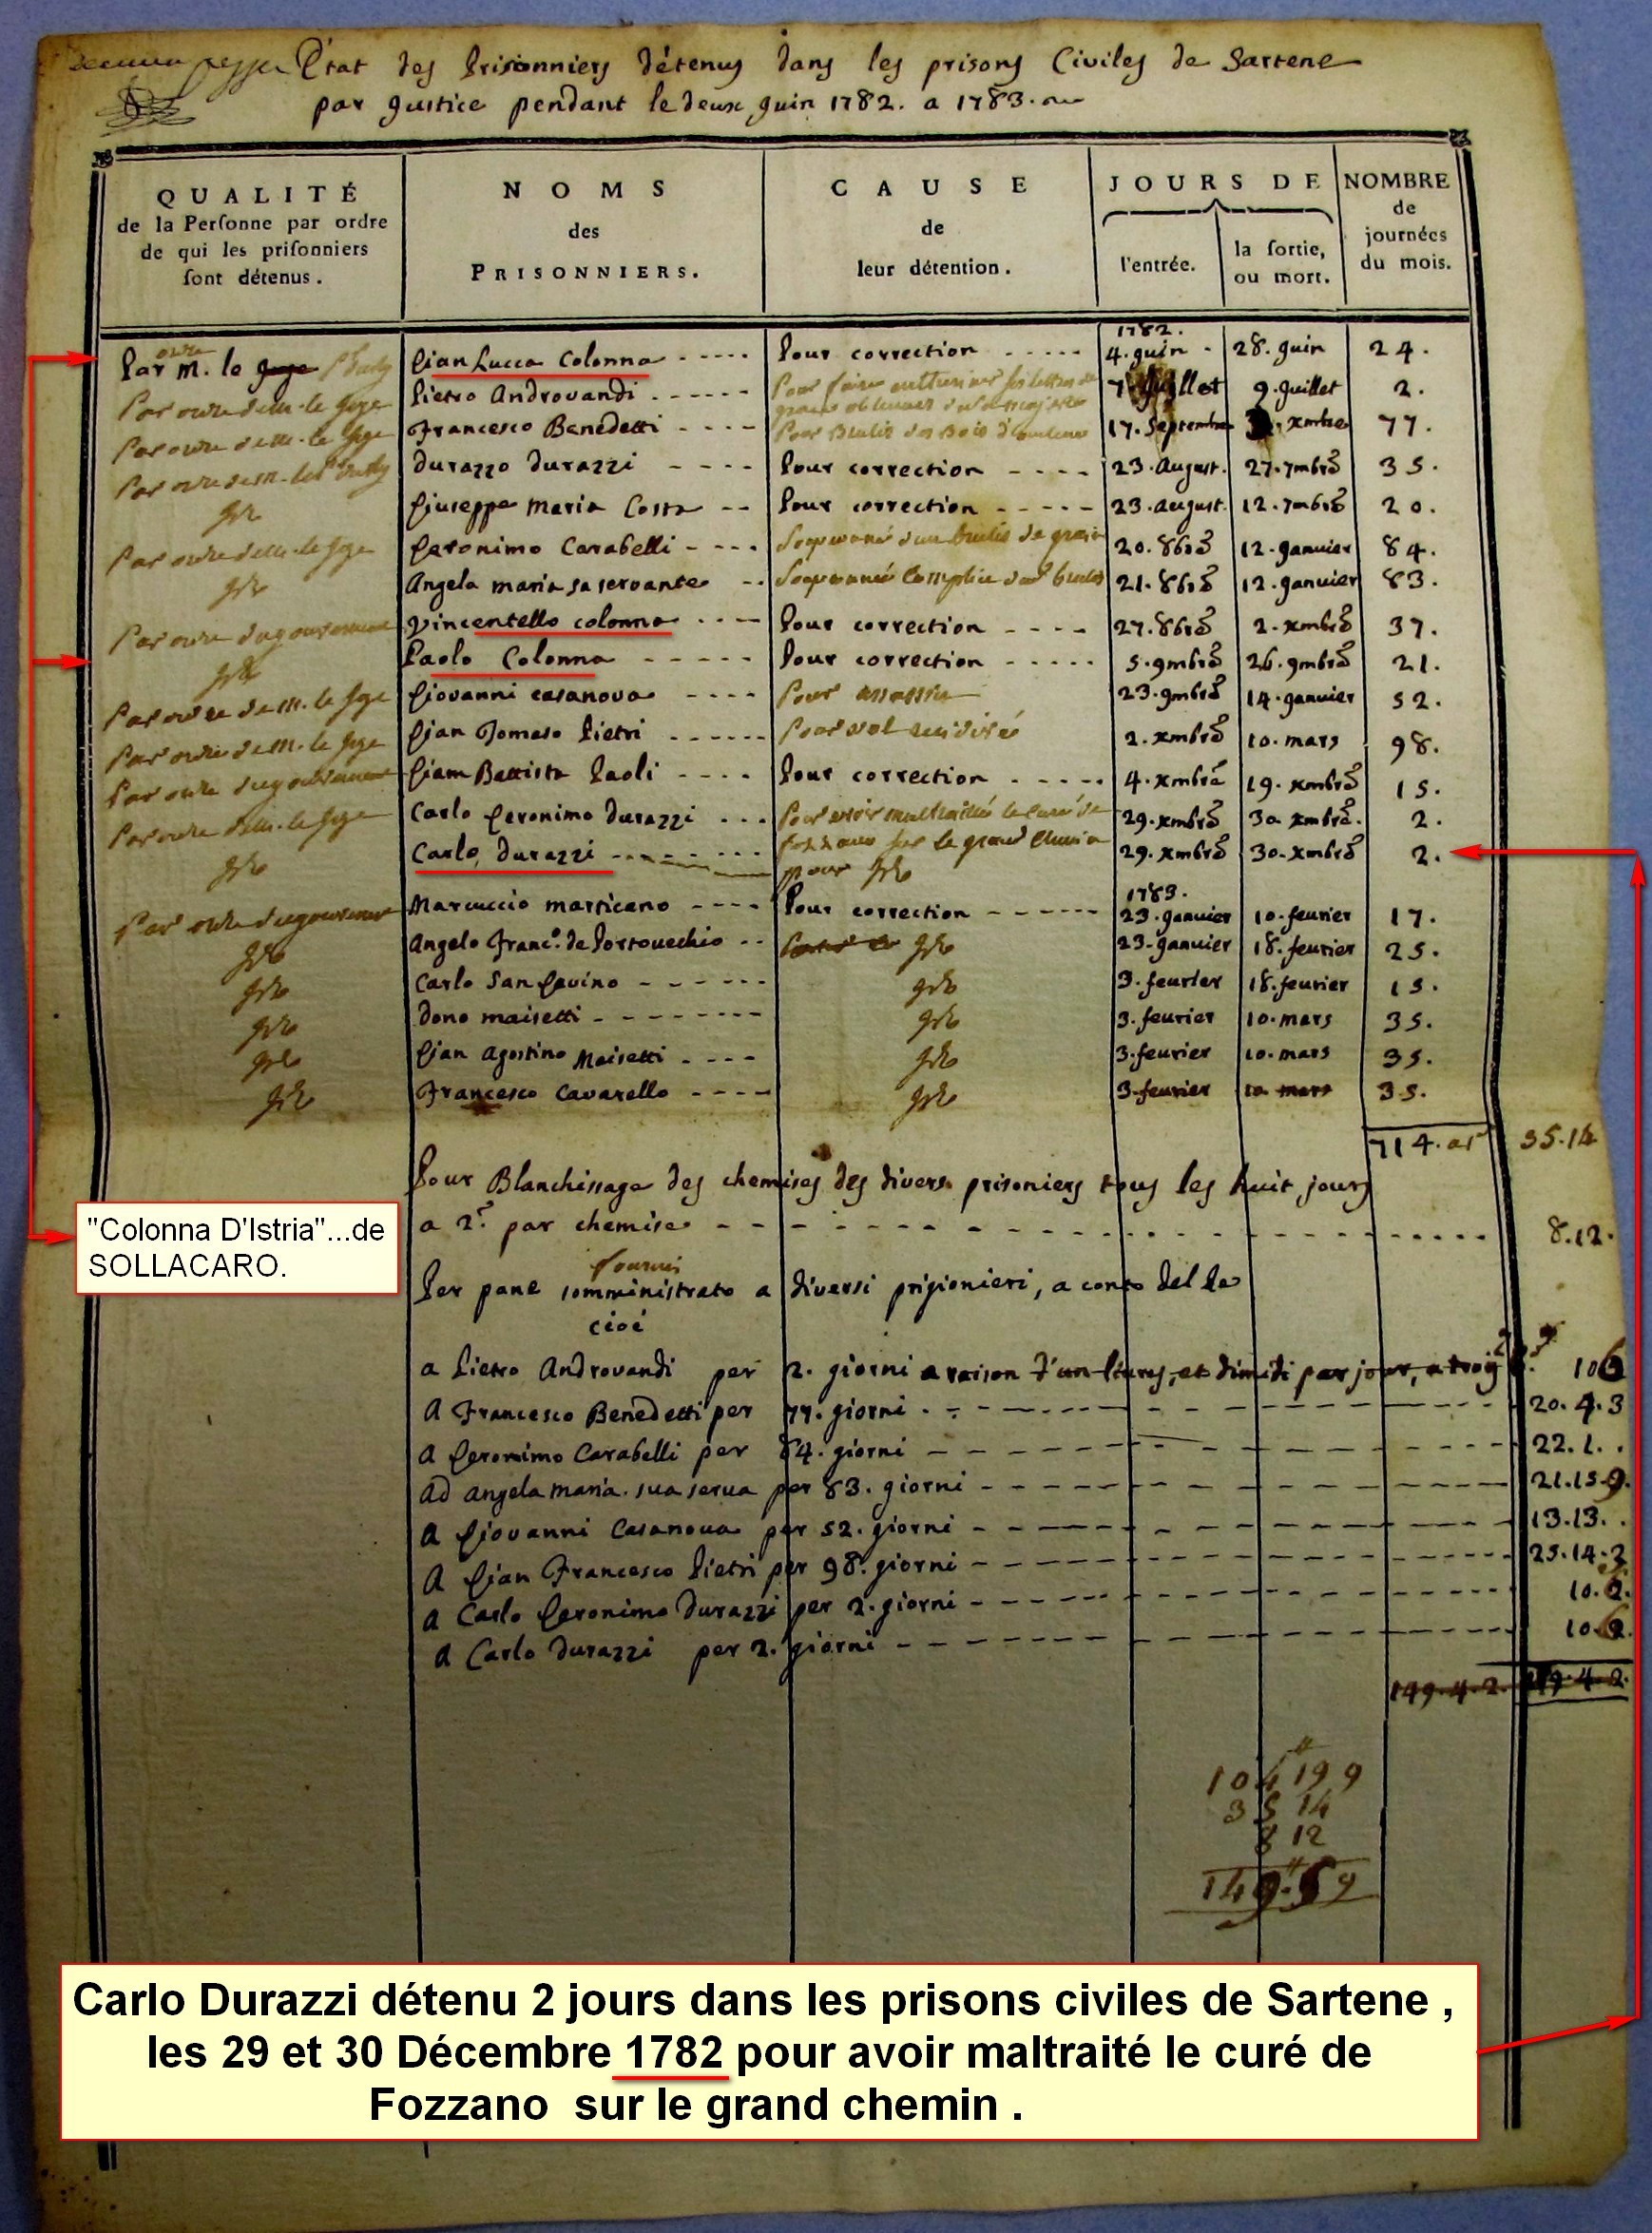 État des Prisonniers détenus dans les prisons Civiles de Sartene
par gustice pendant le deux guin 1782. a 1783.
QUALITÉ
de la Perſonne par ordre
de qui les priſonniers
ſont détenus.
NOMS
des
PRISONNIERS.
CAUSE
de
leur détention.
JOURS DE
l'entrée.
la ſortie,
ou mort.
NOMBRE
de
journées
du mois.
1782.
Par ordre M. le Gian Lucca Colonna Pour correction 4. guin 28. guin 24.
Par ordre de M. le Juge Pietro Androvandi 7 Guillet 9. Guillet 2.
Par ordre de M. le Juge Francesco Benedetti 17. Septembre xmbre 77.
Durazzo Durazzi Pour correction 23. August. 27. 7mbre 35.
Giuseppe Maria Costa Pour correction 23. august. 12. 7mbre 20.
Par ordre de M. le Juge Geronimo Carabelli 20. 8bre 12. ganuier 84.
Angela maria sa servante 21. 8bre 12. ganuier 83.
Par ordre du gouvernement Vincentello colonna Pour correction 27. 8bre 2. xmbre 37.
Paolo Colonna Pour correction 5. 9mbre 26. 9mbre 21.
Par ordre de M. le Juge Giovanni casanova Pour assassin 23. 9mbre 14. ganuier 52.
Par ordre de M. le Juge Gian Tomaso Pietri Pour vol 2. xmbre 10. mars 98.
Par ordre du gouvernement Giam Battista Paoli Pour correction 4. xmbre 19. xmbre 15.
Par ordre de M. le Juge Carlo Geronimo Durazzi Pour avoir maltraitté le curé de 29. xmbre 30 xmbre. 2.
Carlo Durazzi sur le grand chemin 29. xmbre 30. xmbre 2.
pour
1783.
Par ordre du gouvernement Marcuccio marticano Pour correction 23. ganuier 10. feurier 17.
Angelo Franc.º de Portouechio 23. ganuier 18. feurier 25.
Carlo San Gavino 3. feurier 18. feurier 15.
Dono maisetti 3. feurier 10. mars 35.
Gian Agostino Maisetti 3. feurier 10. mars 35.
Francesco Cavarello 3. feurier 10 mars 35.
714. a 1ˢ 35.14
Pour Blanchissage des chemises des divers prisoniers tous les huit jours
a 2ˢ par chemise 8.12.
fourni
Per pane somministrato a diversi prigionieri, a conto del Re
cioé
a Pietro Androvandi per 2. giorni a raison d'un par jour, 10
A Francesco Benedetti per 77. giorni 20.4.3
A Geronimo Carabelli per 84. giorni 22.1.
Ad angela maria sua serua per 83. giorni 21.15.9.
A Giovanni Casanoua per 52. giorni 13.13.
A Gian Francesco Pietri per 98. giorni 25.14.
a Carlo Geronimo Durazzi per 2. giorni 10.
A Carlo Durazzi per 2. giorni 10.
149.4.2.
104 19 9
35 14
8 12
"Colonna D'Istria"...de
SOLLACARO.
Carlo Durazzi détenu 2 jours dans les prisons civiles de Sartene ,
les 29 et 30 Décembre 1782 pour avoir maltraité le curé de
Fozzano sur le grand chemin .